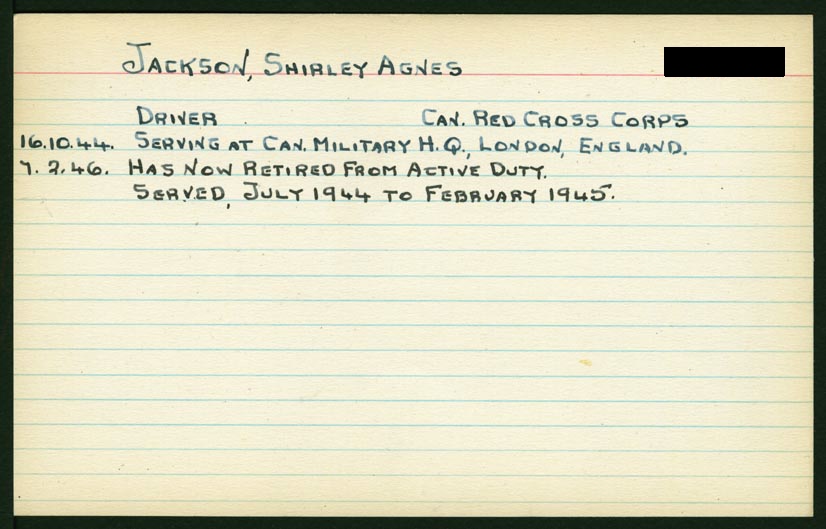 JACKSON, SHIRLEY AGNES
DRIVER CAN. RED CROSS CORPS
16.10.44. SERVING AT CAN. MILITARY H.Q., LONDON, ENGLAND.
7.2.46. HAS NOW RETIRED FROM ACTIVE DUTY.
SERVED, JULY 1944 TO FEBRUARY 1945.